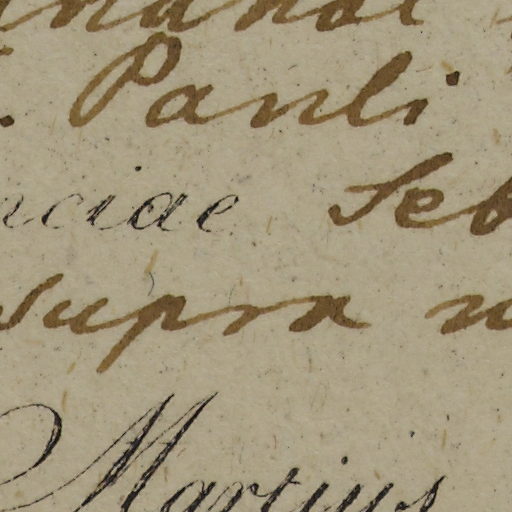 . Pauli
nciae Seb
supra
Martius